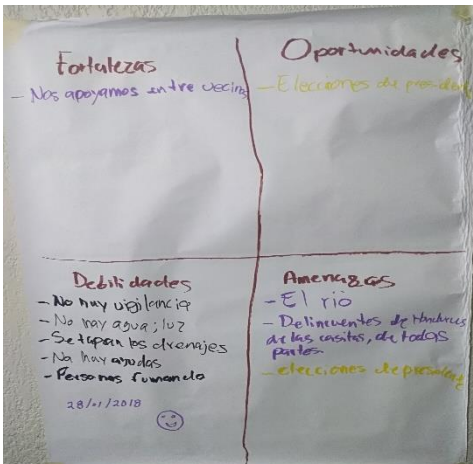 Fortalezas
- Nos apoyamos entre vecinos
Oportunidades
- Elecciones de presidente
Debilidades
- No hay vigilancia
- No hay agua; luz
- Se tapan los drenajes
- No hay ayudas
- Personas fumando
28/01/2018
Amenazas
- El rio
- Delincuentes de Honduras
de las casitas, de todas
partes.
- elecciones de presidente